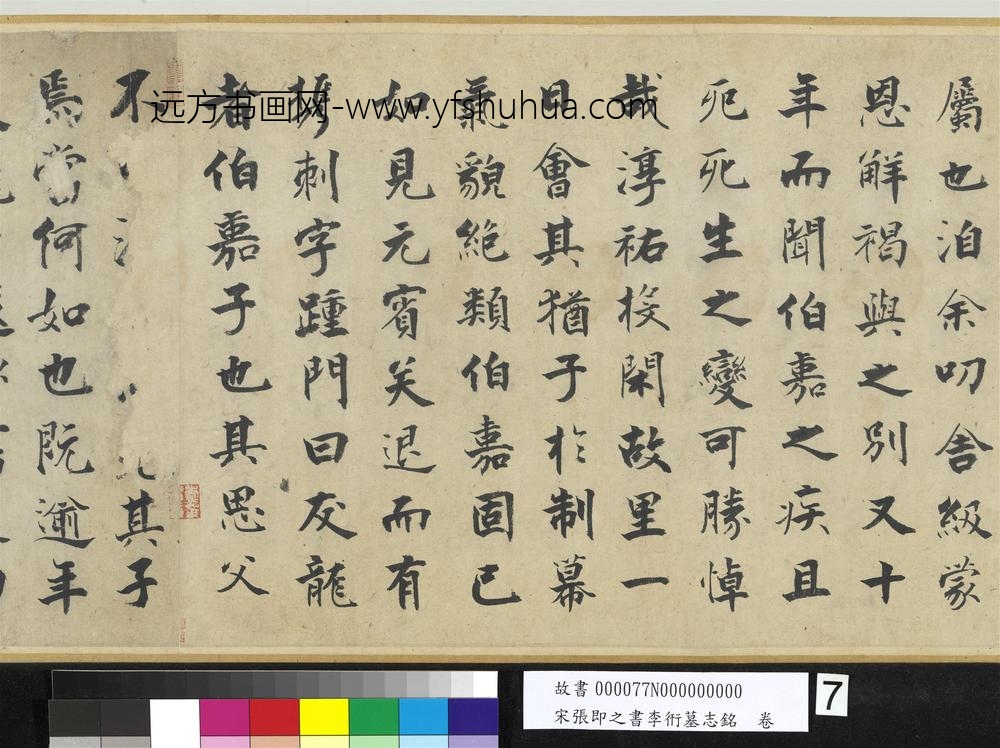 屬也洎余叨舍級蒙
恩解褐與之別又十
年而聞伯嘉之疾且
死死生之變可勝悼
哉淳祐投閑故里一
日會其猶子於制幕
氣貌絕類伯嘉固已
如見元賓矣退而有
刺字踵門曰友龍
者伯嘉子也其思父
不其子
焉當何如也既逾年
远方书画网-www.yfshuhua.com
故書 000077N000000000
宋張即之書李衎墓志銘 卷
7